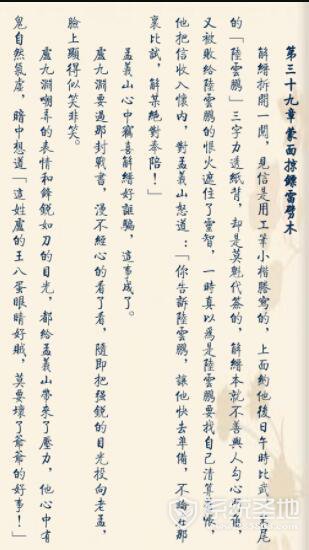 第三十九章 蒙面掠鏢雷劈木
解縉拆開一閱，見信是用工筆小楷謄寫的，上面約他後日午時比武，尾
的「陸雲鵬」三字力透紙背，卻是莫乾代簽的，解縉本就不善與人勾心
又被敗給陸雲鵬的恨火遮住了靈智，一時真以為是陸雲鵬要找自己清算帳，
他把信收入懷內，對孟義山怒道：「你告訴陸雲鵬，讓他快去準備，不論在那
裏比試，解某絕對奉陪！」
孟義山心中竊喜解縉好誆騙，這事成了。
盧九淵要過那封戰書，漫不經心的看了看，隨即把強銳的目光投向老孟，
臉上顯得似笑非笑。
盧九淵嘲弄的表情和鋒銳如刀的目光，都給孟義山帶來了壓力，他心中有
鬼自然氣虛，暗中想道「這姓盧的王八蛋眼睛好賊，莫要壞了爺爺的好事！」
系统圣地